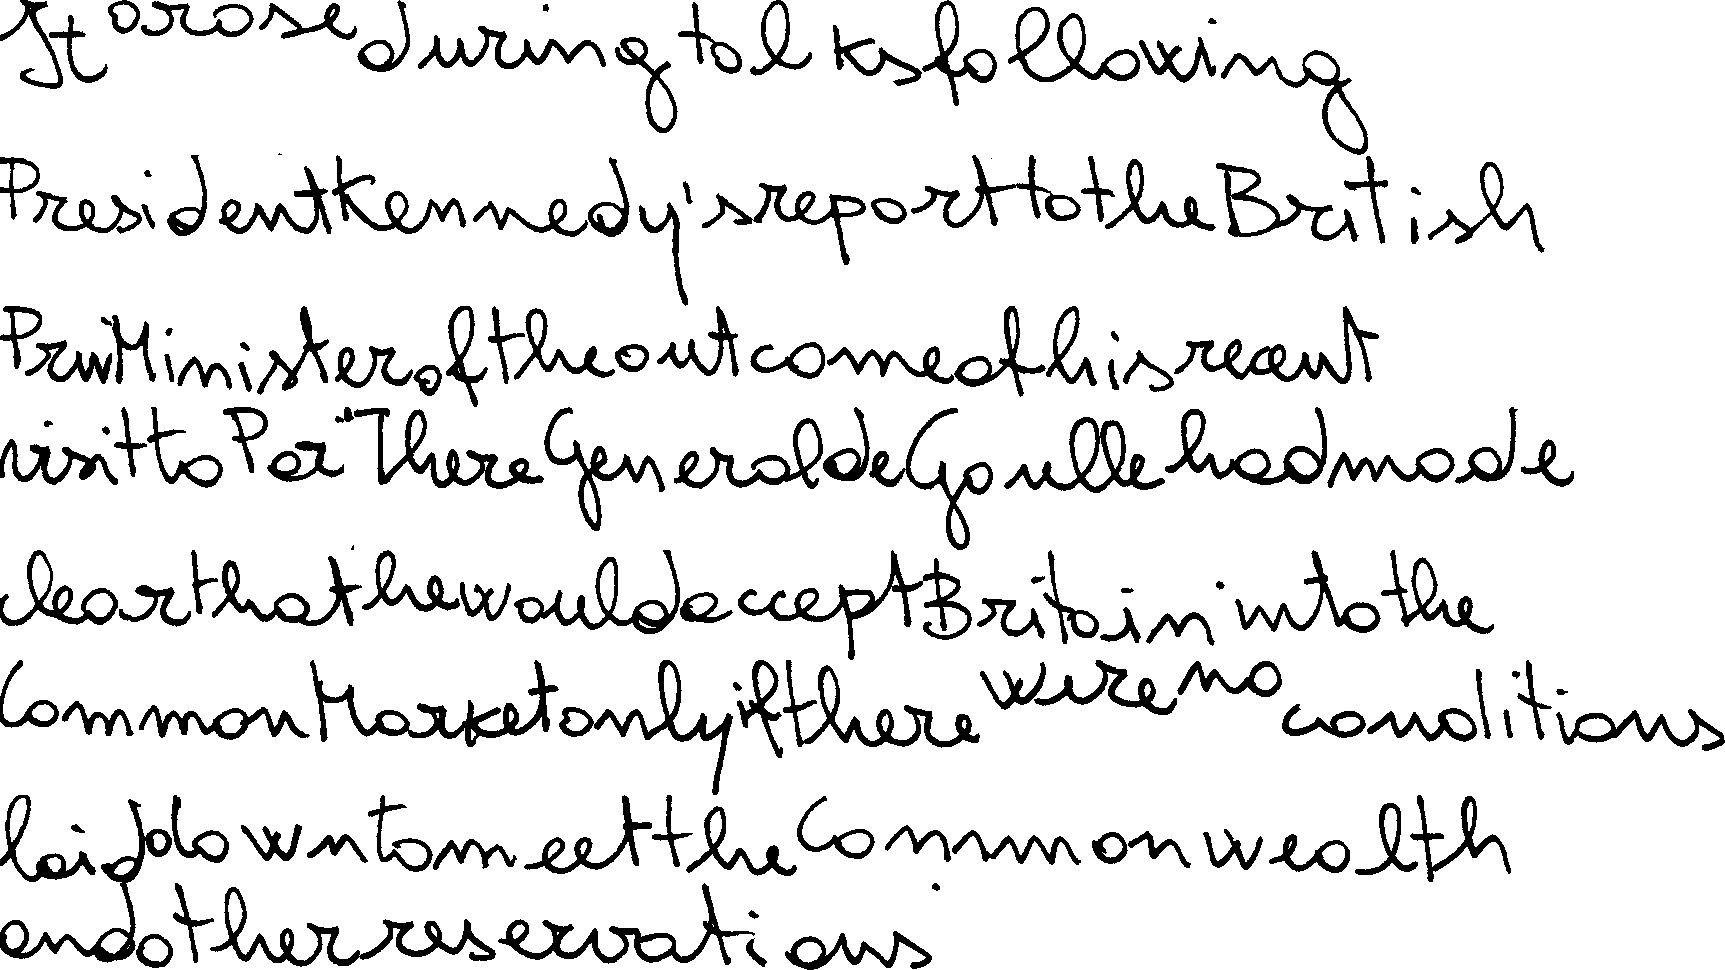 It arose during talks following
President Kennedy's report to the British
Prime Minister of the outcome of his recent
visit to Paris. There General de Gaulle had made
clear that he would accept Britain into the
Common Market only if there were no conditions
laid down to meet the Commonwealth
and other reservations